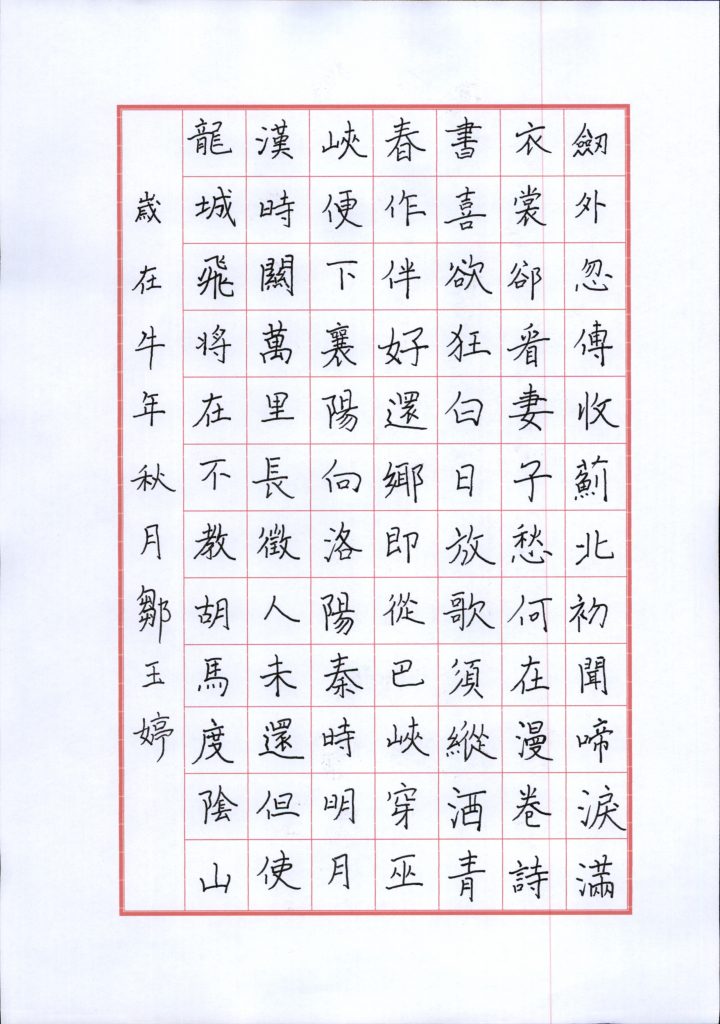 劔外忽傳收薊北初聞啼淚滿
衣裳卻看妻子愁何在漫卷詩
書喜欲狂白日放歌須縱酒青
春作伴好還鄉即從巴峽穿巫
峽便下襄陽向洛陽秦時明月
漢時關萬里長徵人未還但使
龍城飛將在不教胡馬度陰山
歲在牛年秋月鄒玉婷